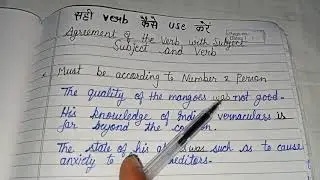 सही verb कैसे use करें
Agreement of the Verb with Subject
Subject and Verb
Must be according to Number & Person
The quality of the mangoes was not good.
His knowledge of Indian vernaculars is
far beyond the
The state of his was such as to cause
anxiety to